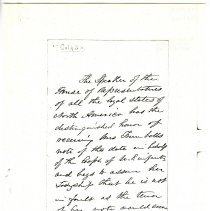 Colfax
The Speaker of the
House of Representatives
of all the loyal states of
North America has the
distinguished honor of
receiving Mrs Trumbulls
note of this date in behalf
of the Dept of
and begs to assure her
Ladyship that he is not
in fault as the tenor
of her note would seem